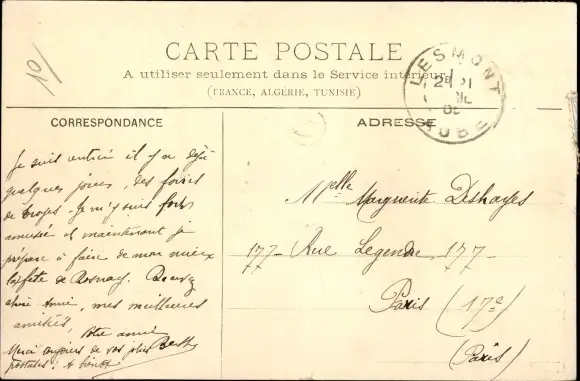 10
CARTE POSTALE
A utiliser seulement dans le Service intérieur
(FRANCE, ALGÉRIE, TUNISIE)
LESMONT
AUBE
CORRESPONDANCE
ADRESSE
Je suis il y a déjà
quelques jours, des foires
de Troyes. Je m'y suis fort
amusée et maintenant je
prépare à faire de mon mieux
la fête de Rosnay.
chère Amie, mes meilleures
amitiés,
Votre amie
Berthe
Merci toujours de vos jolies
postales. A bientôt
Melle Marguerite Deshayes
177 - Rue Legendre 177 -
Paris (17e)
(Paris)